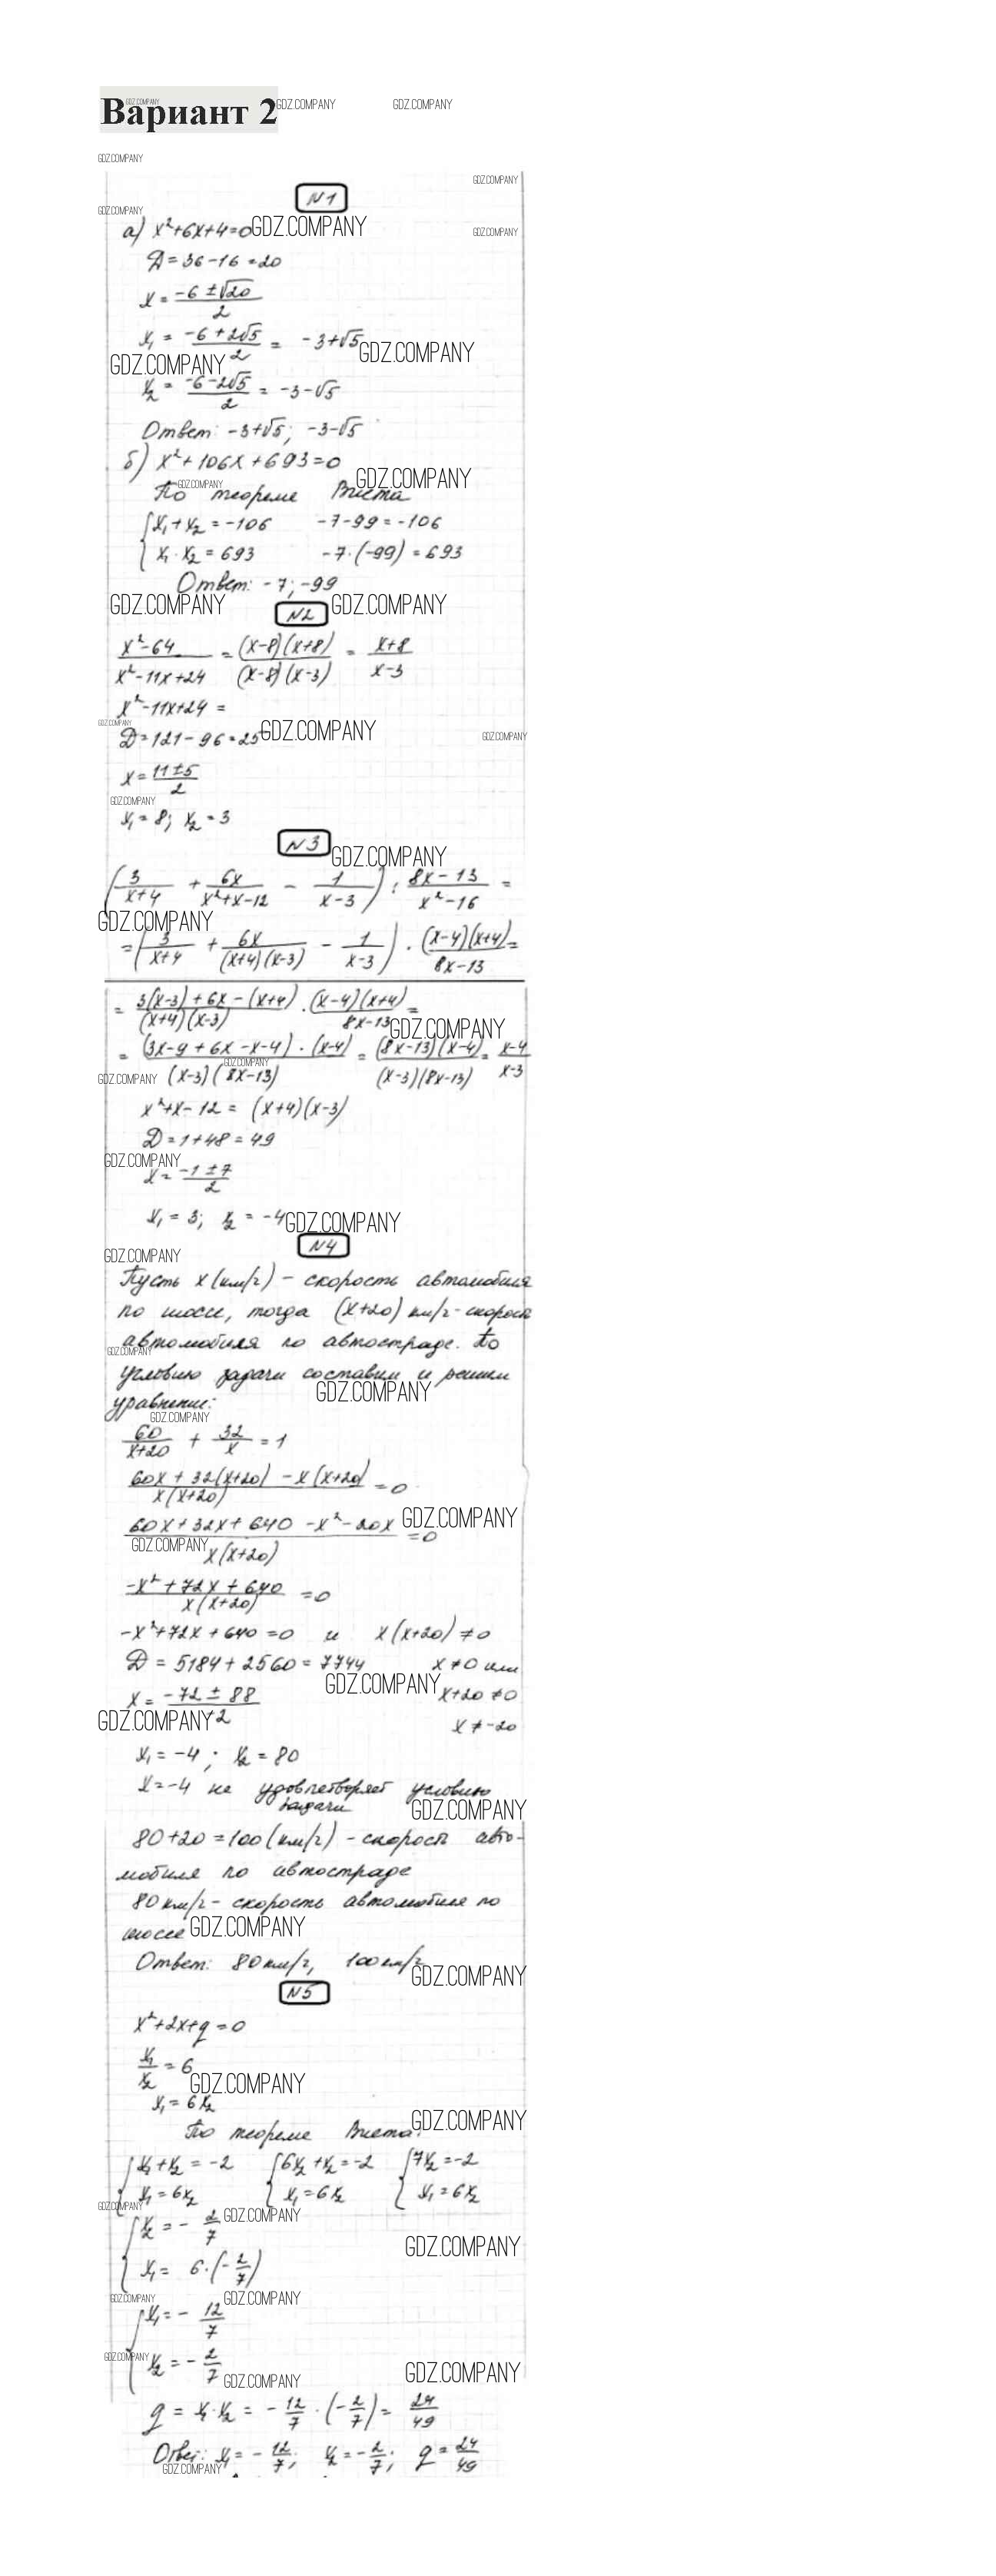 Вариант 2
GDZ.COMPANY
N1
а) x²+6x+4=0
Д=36-16=20
x = (-6±√20)/2
x₁ = (-6+2√5)/2 = -3+√5
x₂ = (-6-2√5)/2 = -3-√5
Ответ: -3+√5; -3-√5
б) x²+106x+693=0
По теореме Виета
{x₁+x₂ = -106    -7-99=-106
{x₁·x₂ = 693    -7·(-99)=693
Ответ: -7; -99
N2
(x²-64)/(x²-11x+24) = (x-8)(x+8)/(x-8)(x-3) = (x+8)/(x-3)
x²-11x+24 =
D=121-96=25
x = (11±5)/2
x₁=8; x₂=3
N3
(3/(x+4) + 6x/(x²+x-12) - 1/(x-3)) : (8x-13)/(x²-16) =
= (3/(x+4) + 6x/((x+4)(x-3)) - 1/(x-3)) · (x-4)(x+4)/(8x-13) =
= (3(x-3)+6x-(x+4))/((x+4)(x-3)) · (x-4)(x+4)/(8x-13) =
= (3x-9+6x-x-4)·(x-4)/((x-3)(8x-13)) = (8x-13)(x-4)/((x-3)(8x-13)) = (x-4)/(x-3)
x²+x-12 = (x+4)(x-3)
D=1+48=49
x = (-1±7)/2
x₁=3; x₂=-4
N4
Пусть x (км/г) - скорость автомобиля
по шоссе, тогда (x+20) км/г - скорость
автомобиля по автостраде. По
условию задачи составим и решим
уравнение:
60/(x+20) + 32/x = 1
(60x+32(x+20)-x(x+20))/(x(x+20)) = 0
(60x+32x+640-x²-20x)/(x(x+20)) = 0
(-x²+72x+640)/(x(x+20)) = 0
-x²+72x+640=0 и x(x+20)≠0
D = 5184+2560=7744    x≠0 или
x = (-72±88)/-2    x+20≠0
x≠-20
x₁=-4; x₂=80
x=-4 не удовлетворяет условию
задачи
80+20=100 (км/г) - скорость авто-
мобиля по автостраде
80 км/г - скорость автомобиля по
шоссе
Ответ: 80 км/г, 100 км/г
N5
x²+2x+q=0
x₁/x₂ = 6
x₁=6x₂
По теореме Виета:
{x₁+x₂=-2    {6x₂+x₂=-2    {7x₂=-2
{x₁=6x₂    {x₁=6x₂    {x₁=6x₂
{x₂ = -2/7
{x₁ = 6·(-2/7)
{x₁ = -12/7
{x₂ = -2/7
q = x₁·x₂ = -12/7·(-2/7) = 24/49
Ответ: x₁=-12/7; x₂=-2/7; q=24/49